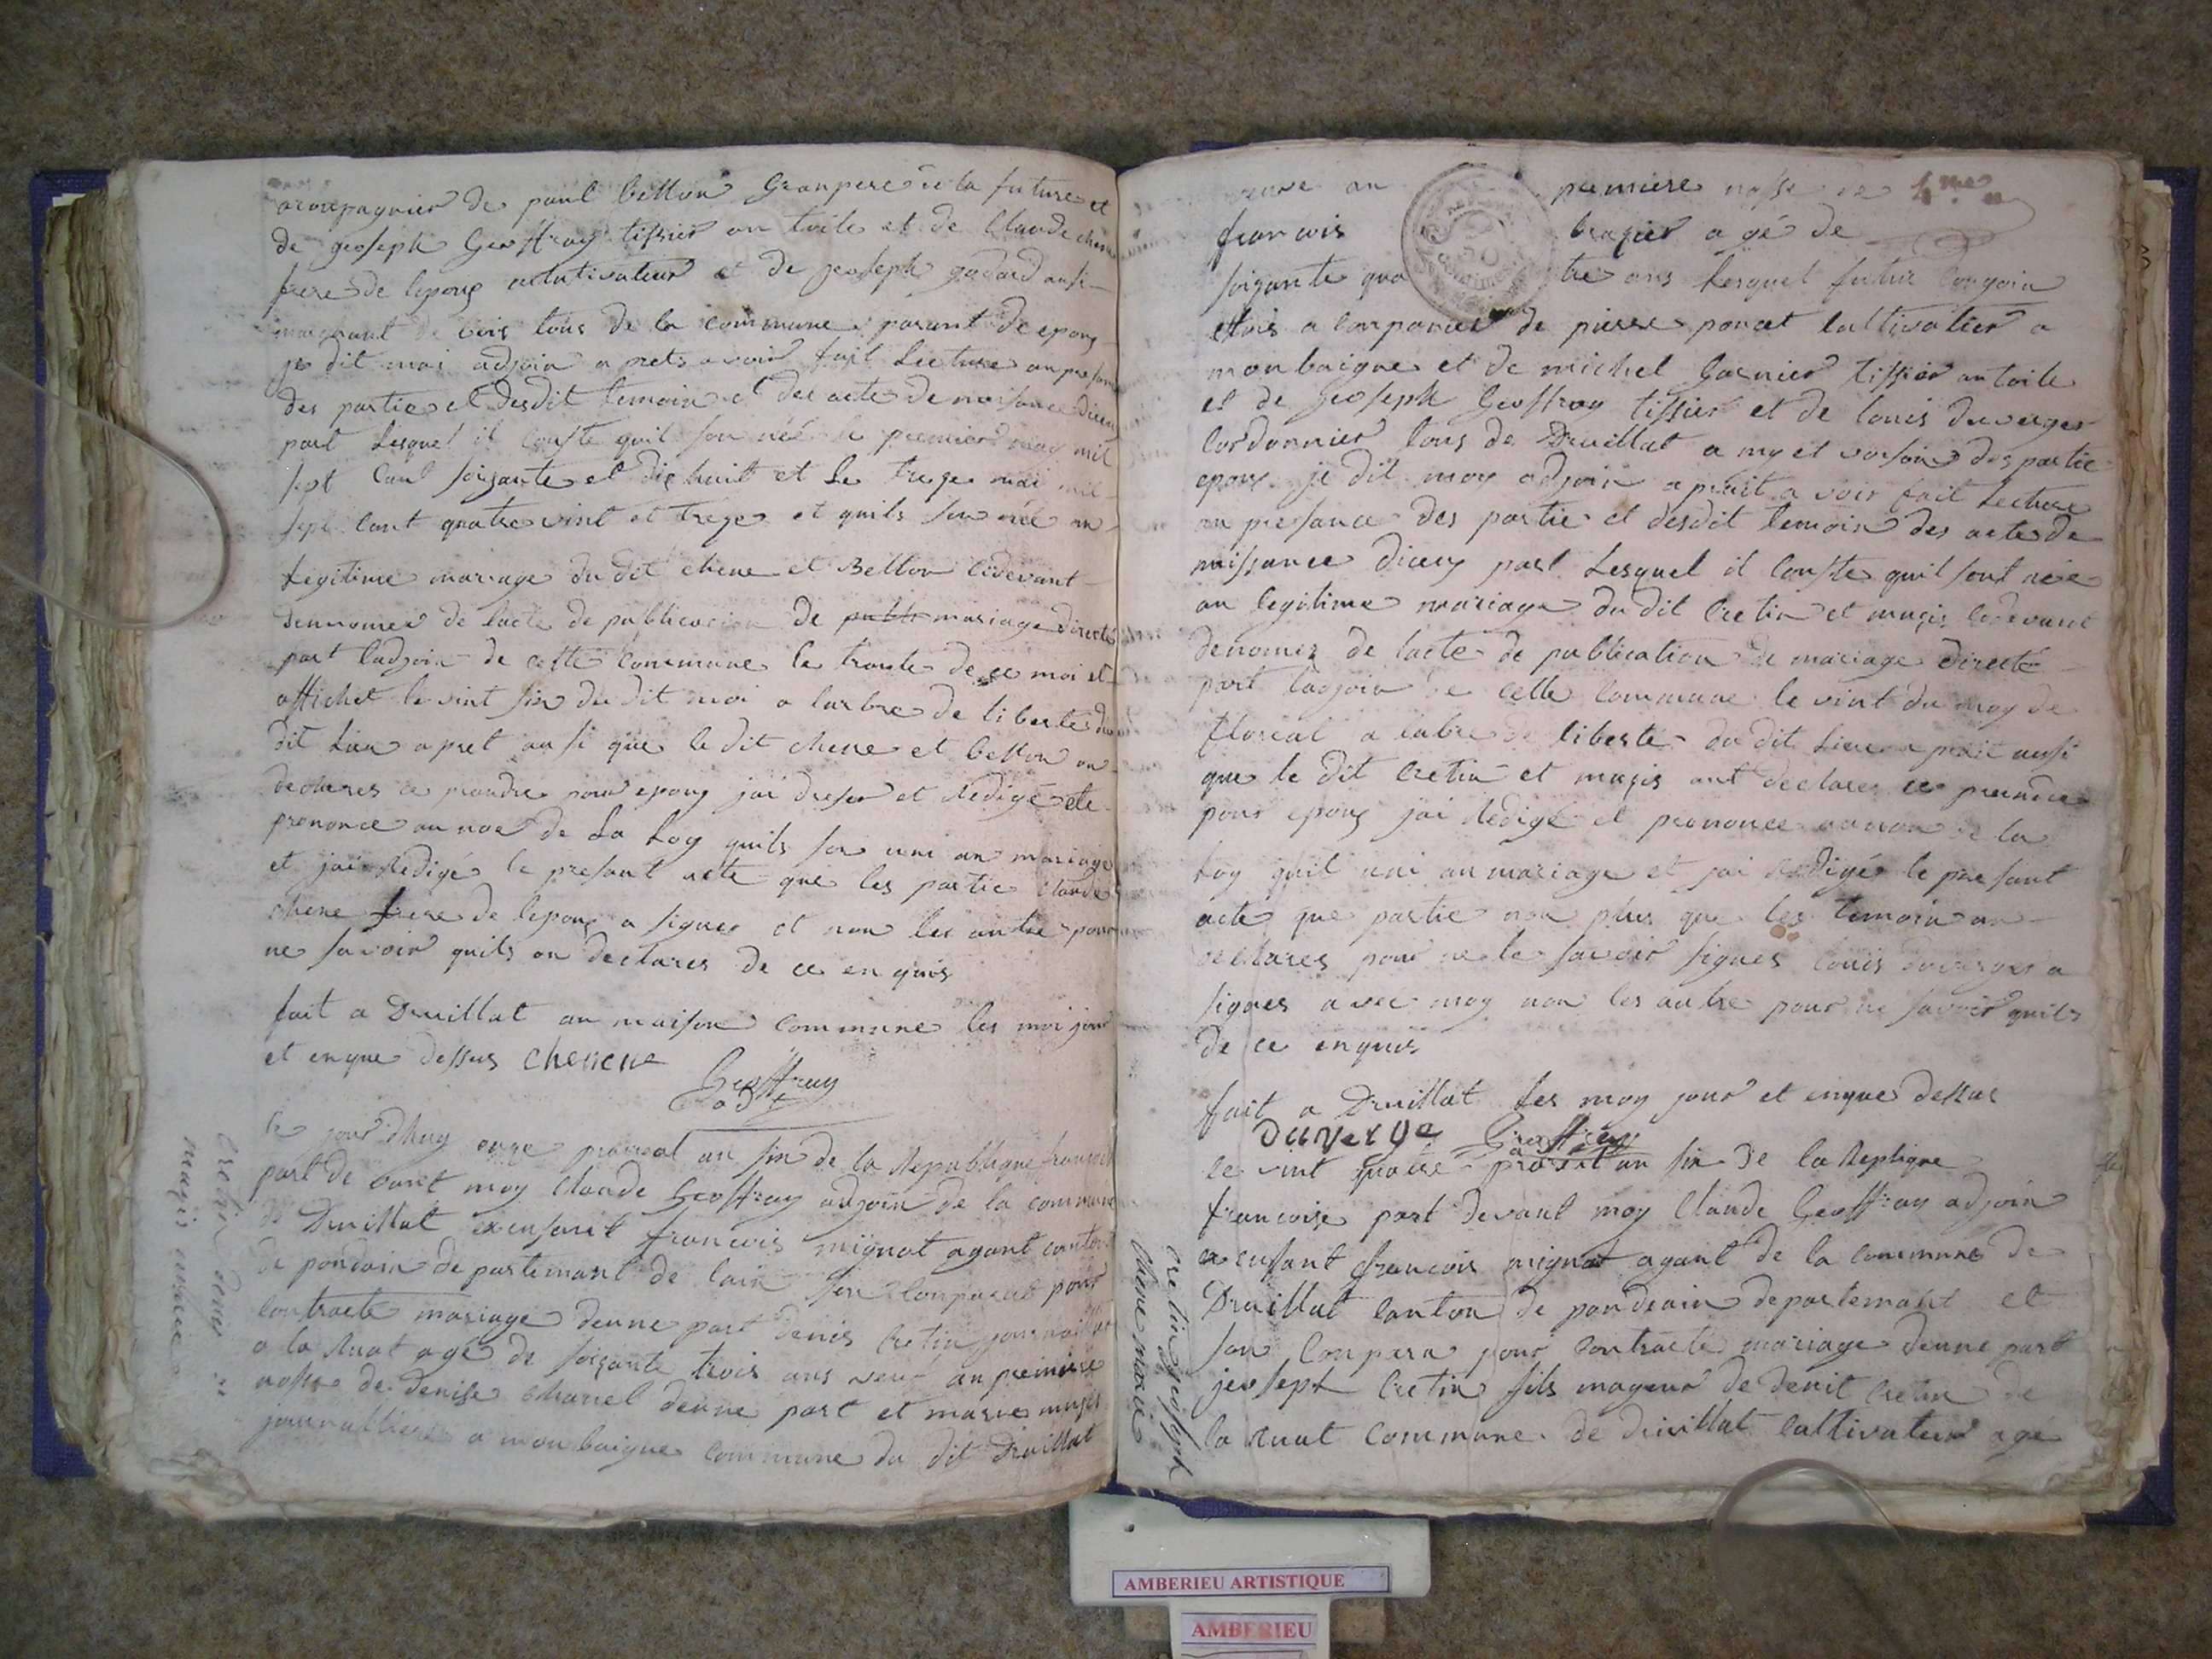 acompagnier de paul bellon Granpere de la future et
de geoseph Geoffray tissier an toile et de Claude chene
frere de lepoux cultivateur et de geoseph godard ausi
marchant de bois tous de la commune parant de epoux
je dit moi adjoin a prets avoir fait Lecture an presan
des partie et desdit temoin et des acte de naisance diceux
part Lesquel il Conste quil son néé le premier may mil
sept Cant soizante et dix huit et Le treze mai mil
sept Cant quatre vint et treze et quils son néé an
Legitime mariage du dit chene et Bellon cidevant
denomee de lacte de publicacion de mariage directé
part ladjoin de cette commune le trante de ce moi et
affichet le vint sin du dit moi a larbre de liberte du
dit Lieu apret ausi que le dit chene et bellon on
declares ce prandre pour epoux jai dreser et Redigé et
prenonce au nom de La Loy quils son uni an mariage
et jai Redigé le presant acte que les partie Claude
chene frere de lepoux a signer et non les autre pour
ne savoir quils on declares de ce en quis
fait a Druillat an maison commune les moi jour
et en que dessus chenene
Geoffray
adt
le jour dhuy onze prairal an sin de la Republique francois
part de vant moy Claude Geoffray adjoin de la commune
de Druillat francois mignot agant canton
de pondain departemant de lain son Comparut pour
Contracte mariage denne part denis Cretin journallier
a la Ruat agé de soizante trois ans veuf an premiere
nosse de denise Charvel denne part et marie mugis
journalliere a monbaigue commune du dit Druillat
Cretin denis
mugis marie
veuve an premiere nosse de 4me
francois brazier agé de
soizante quatre ans Lesquel futur Congoin
etois a Conpanier de pierre poncet Cultivateur a
monbaigue et de michel Garnier tissier an toile
et de Geoseph Geoffray tissier et de louis duverger
Cordonnier tous de Druillat a my et voisin des partie
epoux je dit moy adjoin a prait a voir fait Lecture
an presance des partie et desdit temoin des acte de
naissance diceux part Lesquel il Conste quil sont néé
an legitime mariage du dit Cretin et mugis cidevant
denomez de lacte de publication de mariage directé
part ladjoin de cette Commune le vint du moy de
floreal a labre de liberté du dit Lieu a prait ausi
que le dit Cretin et mugis ont declare ce prandre
pour epoux jai Redigé et prononce au nom de la
Loy quil uni an mariage et jai redigé le presant
acte que partie non plus que les temoin on
declares pour ne le savoir signes louis duverger a
signes avec moy non les autre pour ne savoir quils
de ce enquis
fait a Druillat Les moy jour et enque dessus
duverge Geoffray
le vint quatre prairal an sin de la Repligue
francoise part devant moy Claude Geoffray adjoin
francois mignot agant de la commune de
Druillat Canton de pondrain departemant et
son Compara pour Contracte mariage denne part
jeosept Cretin fils mayeur de denit Cretin de
la Ruat Commune de druillat Cultivateur agé
cretin geoseph
chene marie
AMBERIEU ARTISTIQUE
AMBERIEU